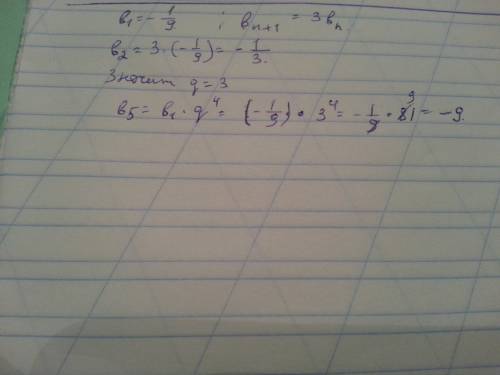 b₁ = -1/9 ; bₙ₊₁ = 3bₙ
b₂ = 3·(-1/9) = -1/3.
Значит q = 3
b₅ = b₁ · q⁴ = (-1/9) · 3⁴ = -1/9 · 81 9 = -9.